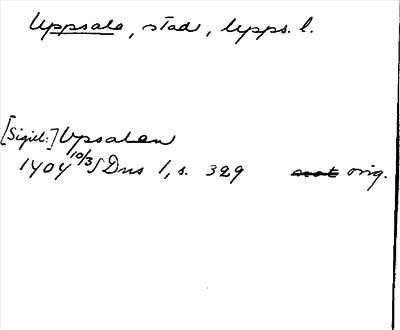 Uppsala, stad, Upps. l.
[Sigill:] Upsalen
1404 10/3 SDns 1, s. 329 orig.